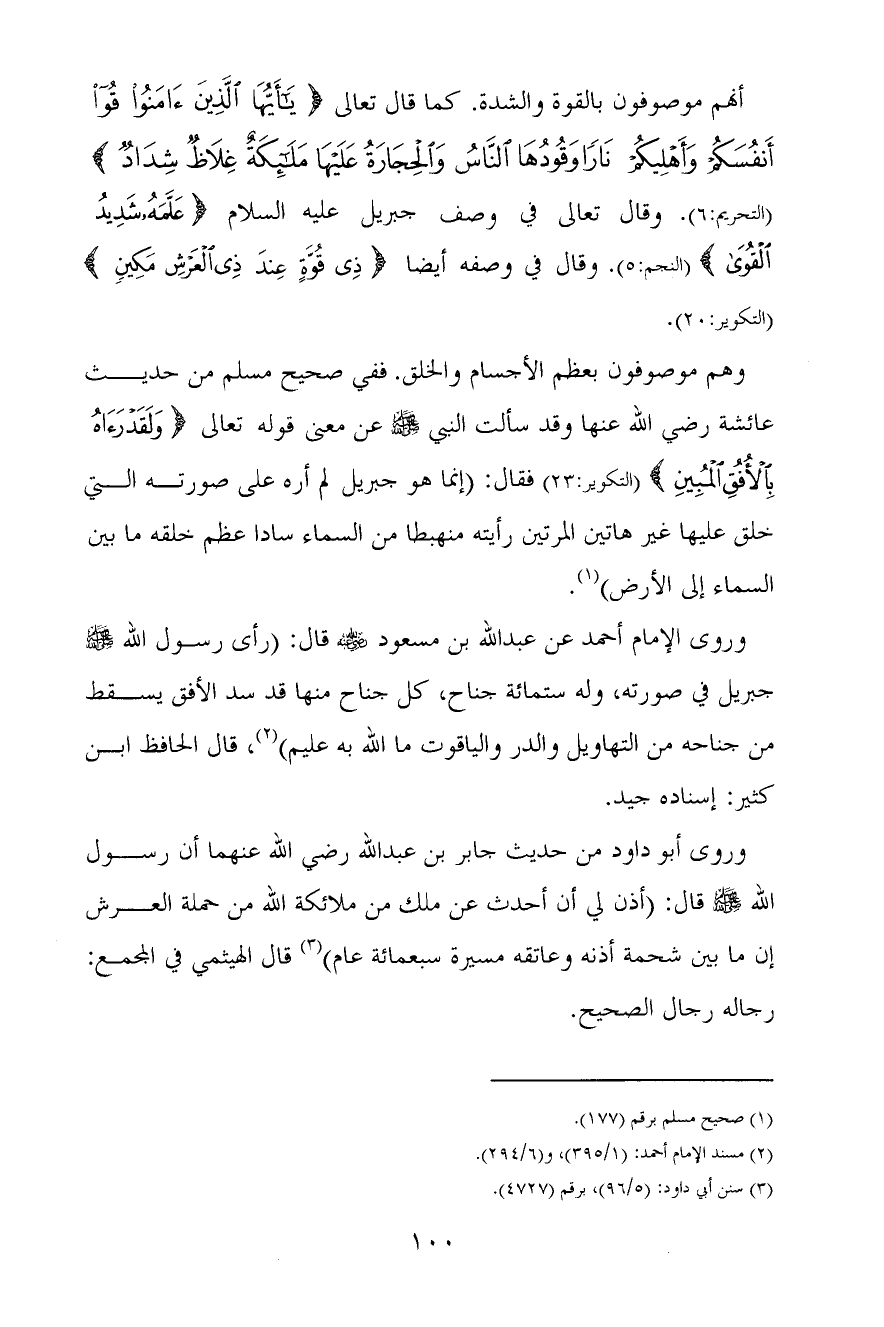 أنهم موصوفون بالقوة والشدة. كما قال تعالى ﴿ يَٰٓأَيُّهَا ٱلَّذِينَ ءَامَنُوا۟ قُوٓا۟
أَنفُسَكُمْ وَأَهْلِيكُمْ نَارًا وَقُودُهَا ٱلنَّاسُ وَٱلْحِجَارَةُ عَلَيْهَا مَلَٰٓئِكَةٌ غِلَاظٌ شِدَادٌ ﴾
(التحريم:٦). وقال تعالى في وصف جبريل عليه السلام ﴿ عَلَّمَهُۥ شَدِيدُ
ٱلْقُوَىٰ ﴾ (النجم:٥). وقال في وصفه أيضا ﴿ ذِى قُوَّةٍ عِندَ ذِى ٱلْعَرْشِ مَكِينٍ ﴾
(التكوير:٢٠).
وهم موصوفون بعظم الأجسام والخلق. ففي صحيح مسلم من حديـــث
عائشة رضي الله عنها وقد سألت النبي ﷺ عن معنى قوله تعالى ﴿ وَلَقَدْ رَءَاهُ
بِٱلْأُفُقِ ٱلْمُبِينِ ﴾ (التكوير:٢٣) فقال: (إنما هو جبريل لم أره على صورتـــه الـــتي
خلق عليها غير هاتين المرتين رأيته منهبطا من السماء سادا عظم خلقه ما بين
السماء إلى الأرض)(١).
وروى الإمام أحمد عن عبدالله بن مسعود ﷺ قال: (رأى رســول الله ﷺ
جبريل في صورته، وله ستمائة جناح، كل جناح منها قد سد الأفق يســـقط
من جناحه من التهاويل والدر والياقوت ما الله به عليم)(٢)، قال الحافظ ابـــن
كثير: إسناده جيد.
وروى أبو داود من حديث جابر بن عبدالله رضي الله عنهما أن رســـول
الله ﷺ قال: (أذن لي أن أحدث عن ملك من ملائكة الله من حملة العـــرش
إن ما بين شحمة أذنه وعاتقه مسيرة سبعمائة عام)(٣) قال الهيثمي في المجمــع:
رجاله رجال الصحيح.
(١) صحيح مسلم برقم (١٧٧).
(٢) مسند الإمام أحمد: (٣٩٥/١)، و(٢٩٤/٦).
(٣) سنن أبي داود: (٩٦/٥)، برقم (٤٧٢٧).
١٠٠